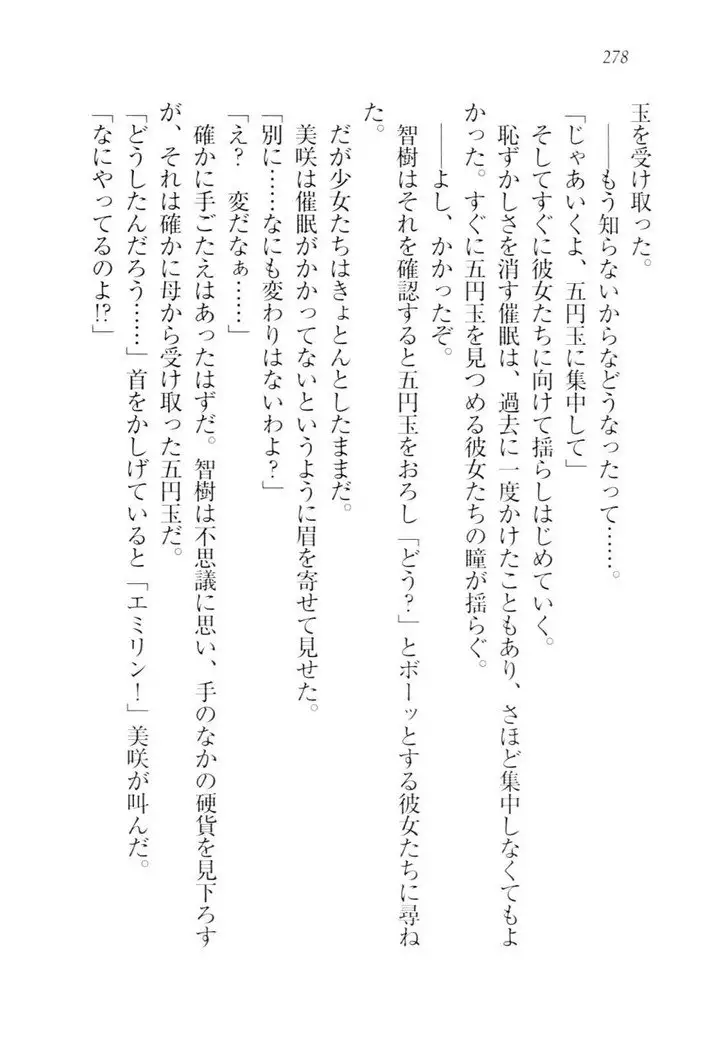 278
玉を受け取った。
――もう知らないからなどうなったって……。
「じゃあいくよ、五円玉に集中して」
そしてすぐに彼女たちに向けて揺らしはじめていく。
恥ずかしさを消す催眠は、過去に一度かけたこともあり、さほど集中しなくてもよ
かった。すぐに五円玉を見つめる彼女たちの瞳が揺らぐ。
――よし、かかったぞ。
智樹はそれを確認すると五円玉をおろし「どう？」とボーッとする彼女たちに尋ね
た。
だが少女たちはきょとんとしたままだ。
美咲は催眠がかかってないというように眉を寄せて見せた。
「別に……なにも変わりはないわよ？」
「え？　変だなぁ……」
確かに手ごたえはあったはずだ。智樹は不思議に思い、手のなかの硬貨を見下ろす
が、それは確かに母から受け取った五円玉だ。
「どうしたんだろう……」首をかしげていると「エミリン！」美咲が叫んだ。
「なにやってるのよ!?」